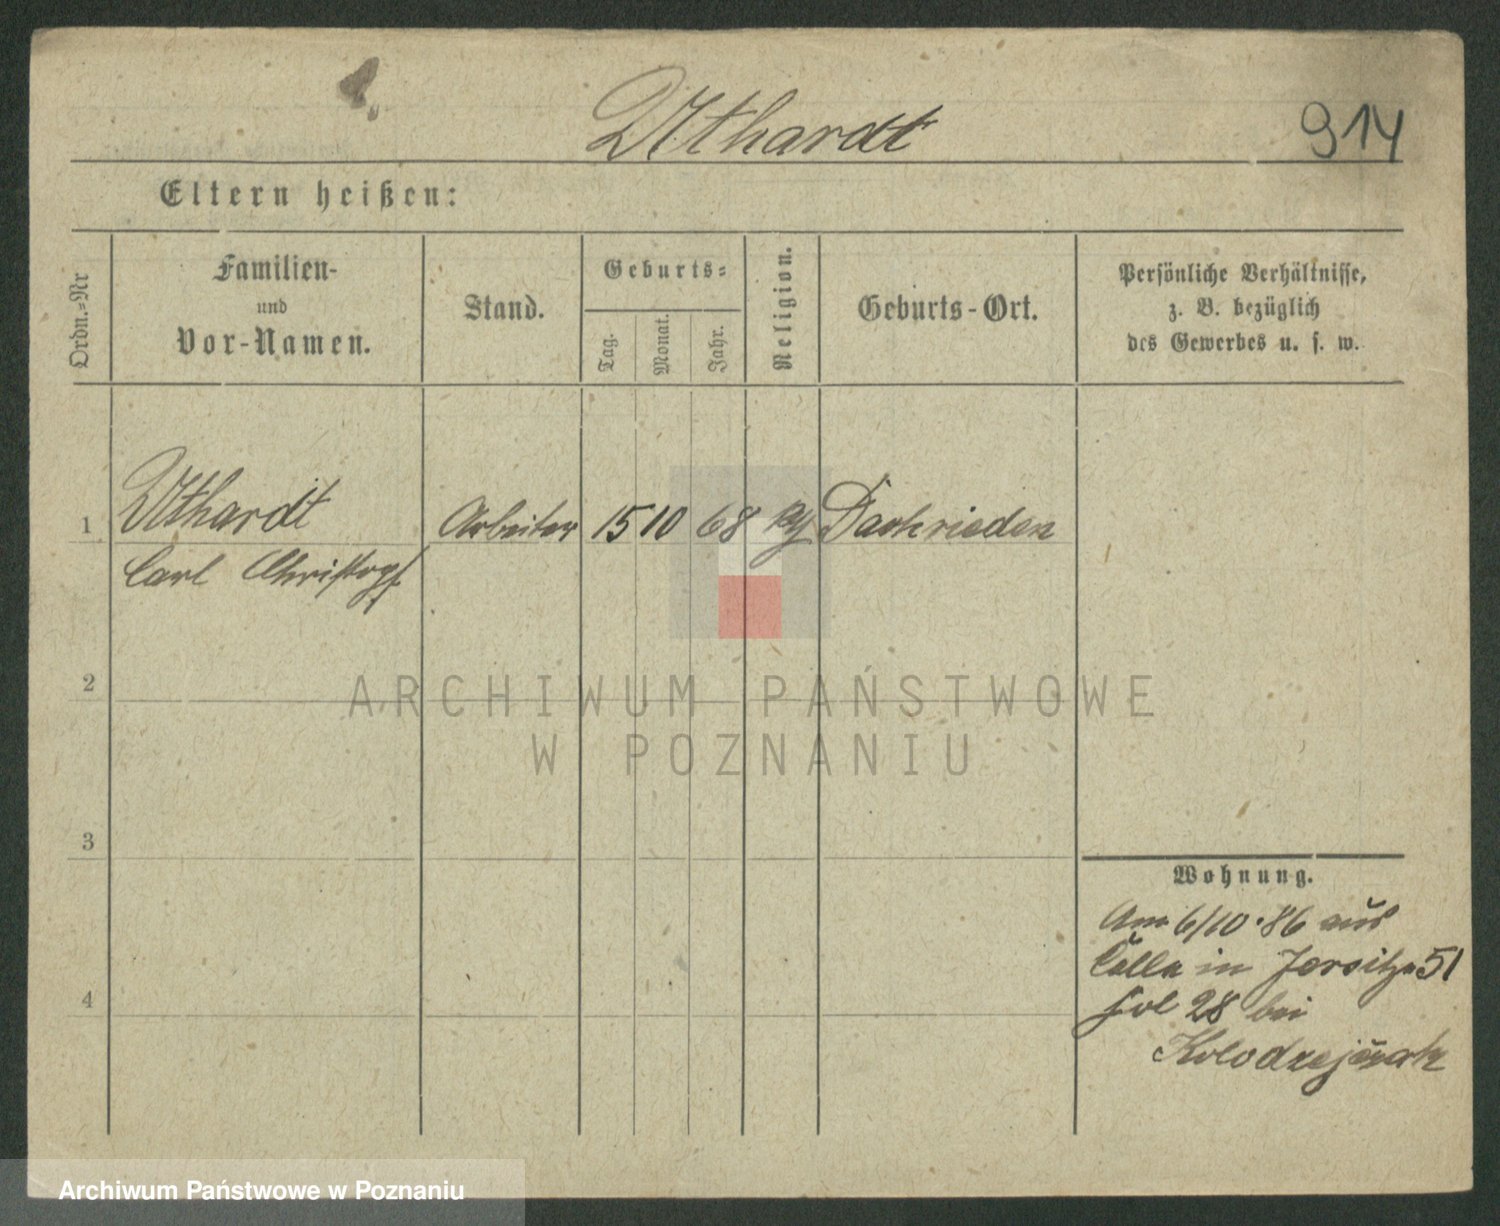 Uthardt
914
Eltern heißen:
Ordn.=Nr
Familien-
und
Vor-Namen.
Stand.
Geburts=
Tag.
Monat.
Jahr.
Religion.
Geburts-Ort.
Persönliche Verhältnisse,
z. B. bezüglich
des Gewerbes u. s. w.
1
Uthardt
Carl Christoph
Arbeiter
15
10
68
Dachrieden
2
3
4
Wohnung.
Am 6/10.86 aus
in Jersitz 51
Fol 28 bei
ARCHIWUM PAŃSTWOWE
W POZNANIU
Archiwum Państwowe w Poznaniu